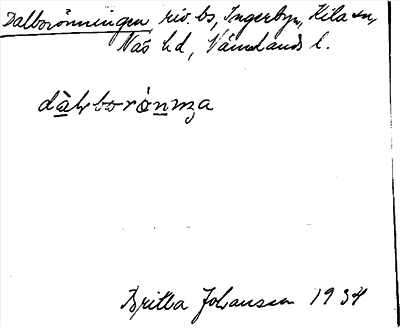 Dalborönningen, riv. bs, Ingerbyn, Kila sn,
Näs hd, Värmlands l.
dàlborònıŋa
Britta Johansson 1934